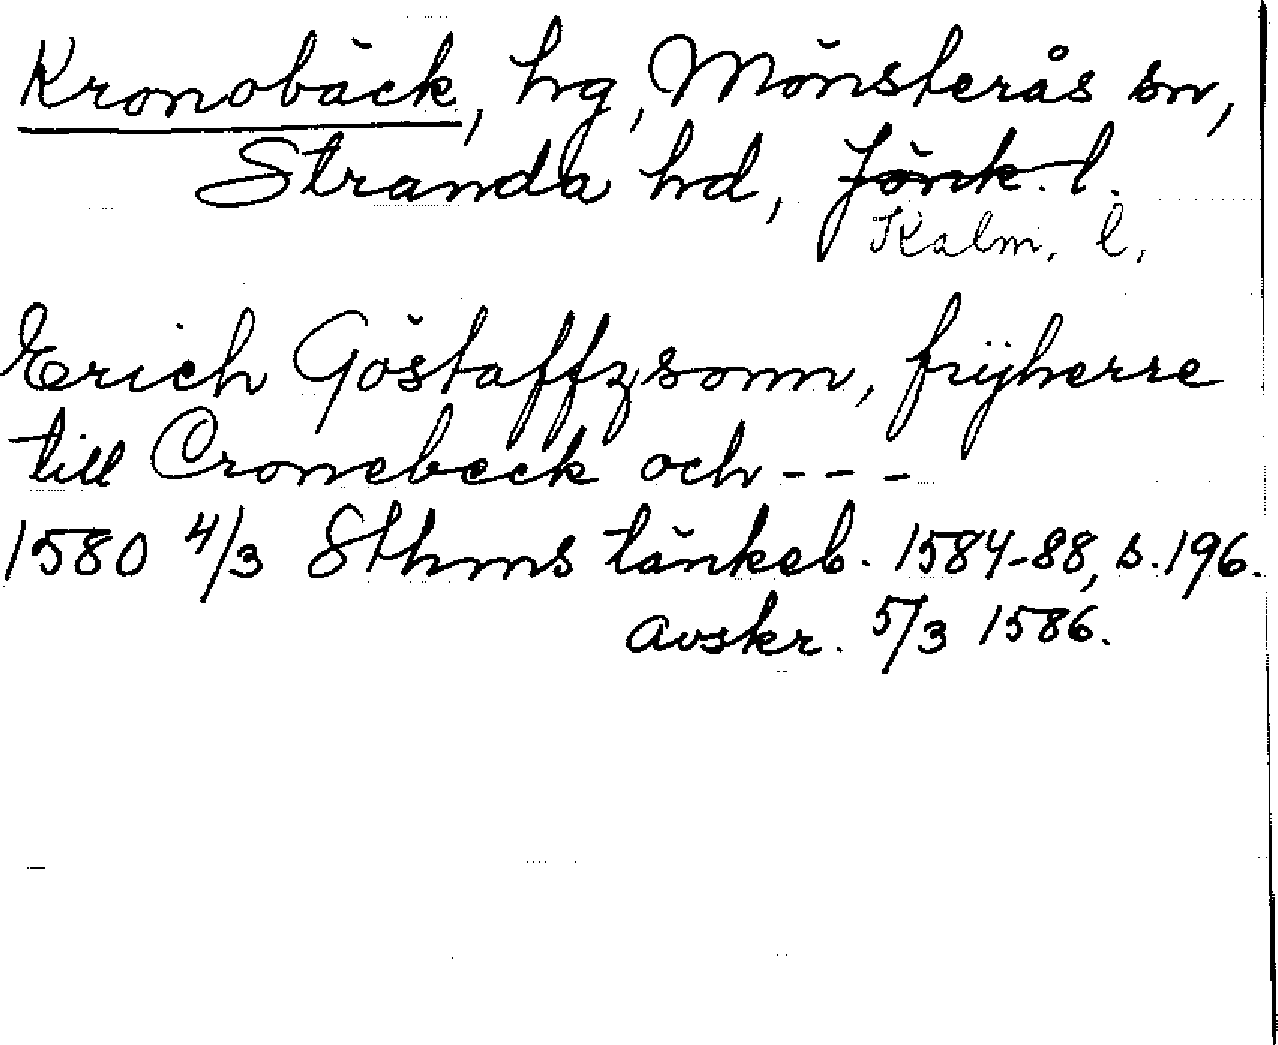 Kronobäck, hg, Mönsterås sn,
Stranda hd, Jönk. l.
Kalm. l.
Erich Göstaffzsonn, frijherre
till Cronebeck och - - -
1580 4/3 Sthms tänkeb. 1584-88, s. 196.
Avskr. 5/3 1586.